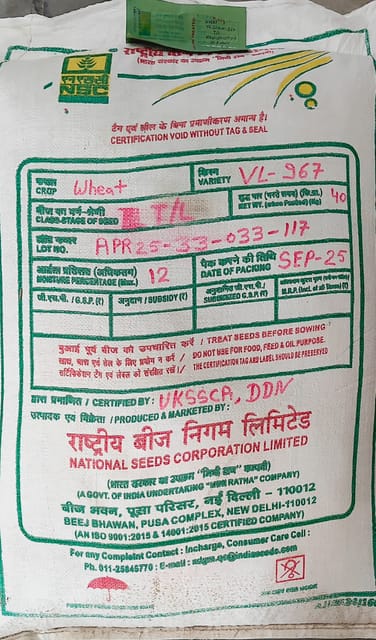 एनएससी
NSC
राष्ट्रीय बीज
(भारत सरकार का उपक्रम "मिनी रत्न" कम्पनी)
टैग एवं सील के बिना प्रमाणीकरण अमान्य है।
CERTIFICATION VOID WITHOUT TAG & SEAL
फसल CROP Wheat किस्म VARIETY VL-967
बीज का वर्ग-श्रेणी CLASS-STAGE OF SEED T/L शुद्ध भार (भरते समय) (कि.ग्रा.) NET WT. (when Packed) (Kg) 40
लॉट नम्बर LOT NO. APR25-33-033-117
आर्द्रता प्रतिशत (अधिकतम) MOISTURE PERCENTAGE (Max.) 12 पैक करने की तिथि DATE OF PACKING SEP-25
जी.एस.पी./ G.S.P. (₹) अनुदान / SUBSIDY (₹) अनुदानित जी.एस.पी./ SUBSIDIZED G.S.P. (₹) M.R.P. (Incl. of all Taxes) (₹)
बुआई पूर्व बीज को उपचारित करें / TREAT SEEDS BEFORE SOWING
खाद्य, चारा एवं तेल के लिए प्रयोग न करें / DO NOT USE FOR FOOD, FEED & OIL PURPOSE.
सर्टिफिकेशन टैग एवं लेबल को संरक्षित रखें / THE CERTIFICATION TAG AND LABEL SHOULD BE PRESERVED
द्वारा प्रमाणित / CERTIFIED BY : UKSSCA, DDN
उत्पादक एवं विक्रेता / PRODUCED & MARKETED BY :
राष्ट्रीय बीज निगम लिमिटेड
NATIONAL SEEDS CORPORATION LIMITED
(भारत सरकार का उपक्रम "मिनी रत्न" कम्पनी)
(A GOVT. OF INDIA UNDERTAKING "MINI RATNA" COMPANY)
बीज भवन, पूसा परिसर, नई दिल्ली - 110012
BEEJ BHAWAN, PUSA COMPLEX, NEW DELHI-110012
(AN ISO 9001:2015 & 14001:2015 CERTIFIED COMPANY)
For any Complaint Contact : Incharge, Consumer Care Cell :
Ph. 011-25845770 : E-mail :